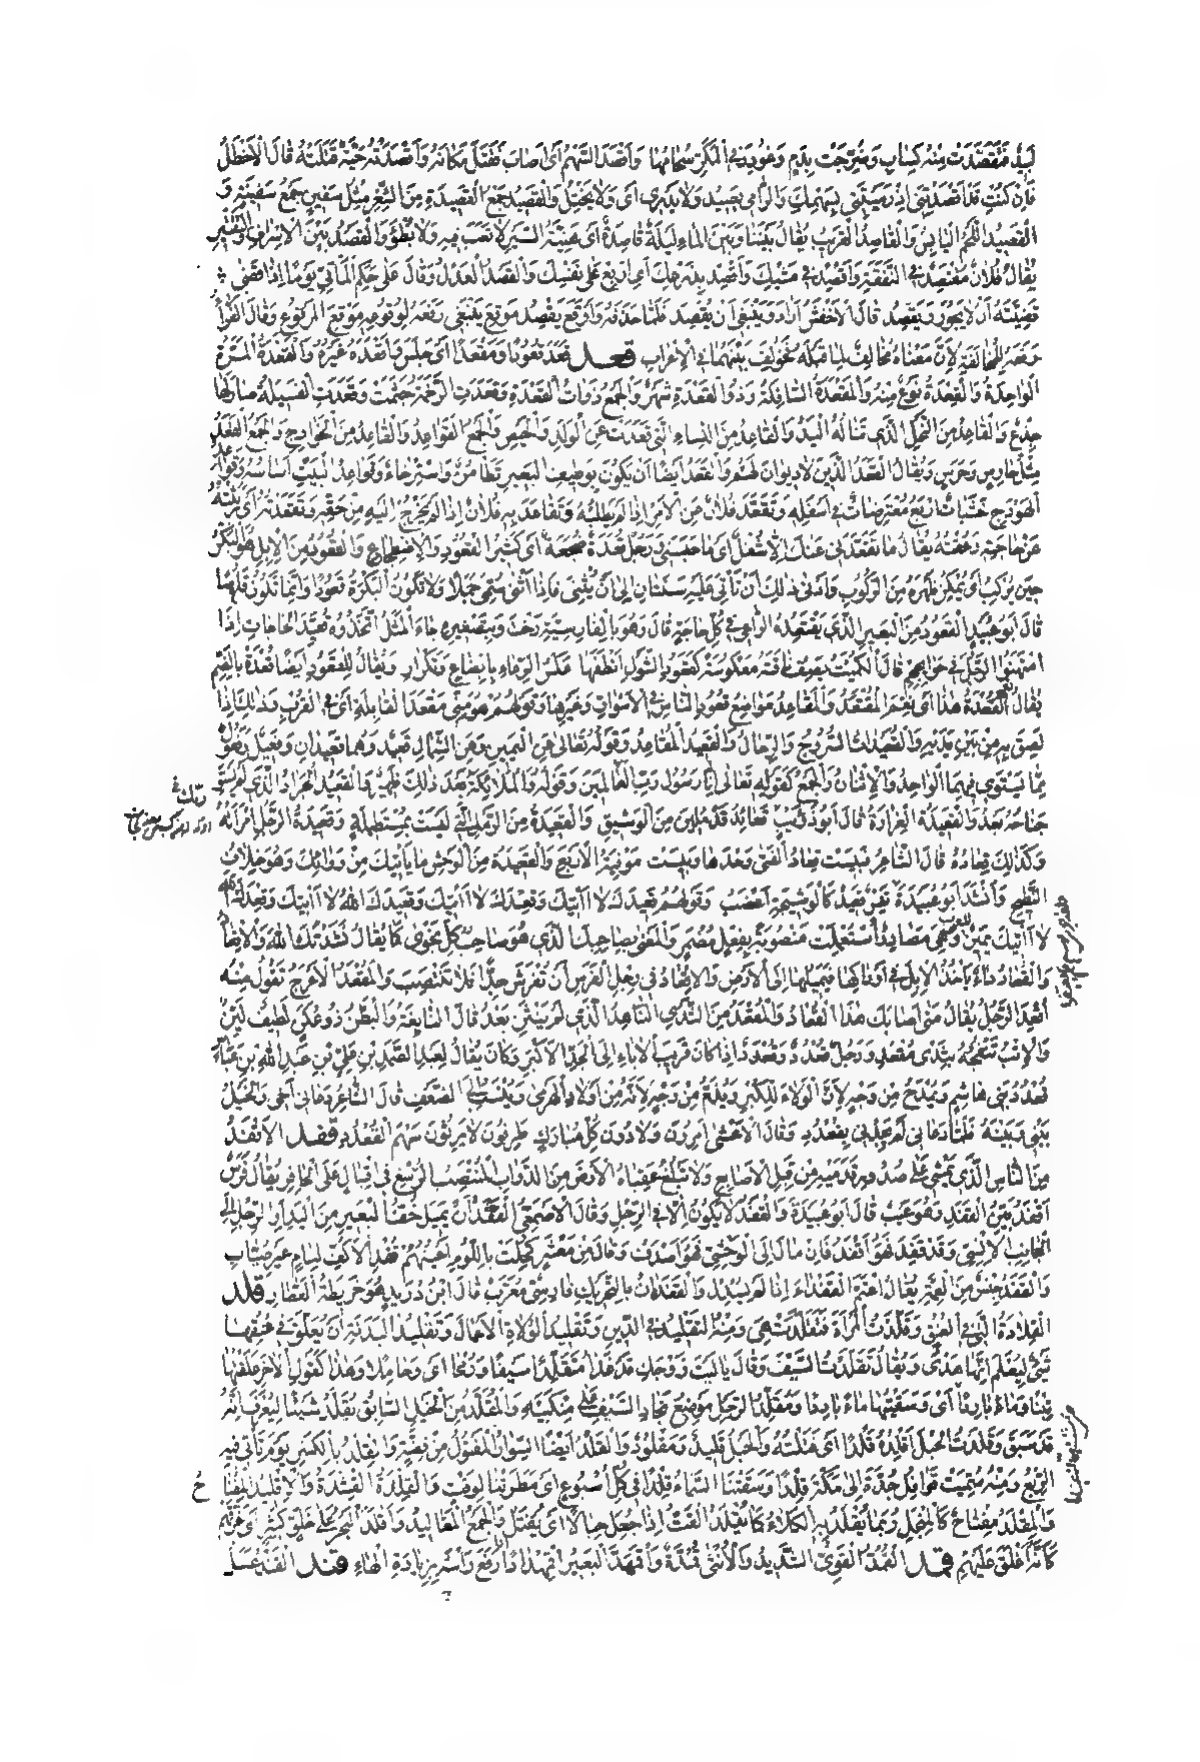 لَبِيدٌ فَتَقَصَّدَتْ مِنْهُ كِسَابِ وَضُرِّجَتْ بِدَمٍ وَغُودِرَ فِي الْمَكَرِّ سُحَامُهَا وَأَقْصَدَ السَّهْمُ أَيْ أَصَابَ فَقَتَلَ مَكَانَهُ وَأَقْصَدَتْهُ حَيَّةٌ قَتَلَتْهُ قَالَ الْأَخْطَلُ
فَإِنْ كُنْتِ قَدْ أَقْصَدْتِنِي إِذْ رَمَيْتَنِي بِسَهْمِكِ وَالرَّامِي يَصِيدُ وَلَا يَدْرِي أَيْ وَلَا يَخْتِلُ وَالْقَصِيدُ جَمْعُ الْقَصِيدَةِ مِنَ الشِّعْرِ مِثْلُ سَفِينٍ جَمْعُ سَفِينَةٍ وَ
الْقَصِيدُ اللَّحْمُ الْيَابِسُ وَالْقَاصِدُ الْقَرِيبُ يُقَالُ بَيْنَنَا وَبَيْنَ الْمَاءِ لَيْلَةٌ قَاصِدَةٌ أَيْ هَيِّنَةُ السَّيْرِ لَا تَعَبَ فِيهِ وَلَا بُطْءَ وَالْقَصْدُ بَيْنَ الْإِسْرَافِ وَالتَّقْتِيرِ
يُقَالُ فُلَانٌ مُقْتَصِدٌ فِي النَّفَقَةِ وَاقْصِدْ فِي مَشْيِكَ وَاقْصِدْ بِذَرْعِكَ أَيِ ارْبَعْ عَلَى نَفْسِكَ وَالْقَصْدُ الْعَدْلُ وَقَالَ عَلَى حَكَمِ الْمَأْتِيِّ يَوْمًا إِذَا قَضَى
قَضِيَّتَهُ أَنْ لَا يَجُورَ وَيَقْصِدُ قَالَ الْأَخْفَشُ أَرَادَ وَيَنْبَغِي أَنْ يَقْصِدَ فَلَمَّا حَذَفَهُ وَأَوْقَعَ يَقْصِدُ مَوْقِعَ يَنْبَغِي رَفَعَهُ لِوُقُوعِهِ مَوْقِعَ الْمَرْفُوعِ وَقَالَ الْفَرَّاءُ
رَفَعَهُ لِلْمُخَالَفَةِ لِأَنَّ مَعْنَاهُ مُخَالِفٌ لِمَا قَبْلَهُ فَخُولِفَ بَيْنَهُمَا فِي الْإِعْرَابِ قعد قَعَدَ قُعُودًا وَمَقْعَدًا أَيْ جَلَسَ وَأَقْعَدَهُ غَيْرُهُ وَالْقَعْدَةُ الْمَرَّةُ
الْوَاحِدَةُ وَالْقِعْدَةُ نَوْعٌ مِنْهُ وَالْمَقْعَدَةُ السَّافِلَةُ وَذُو الْقَعْدَةِ شَهْرٌ وَالْجَمْعُ ذَوَاتُ الْقَعْدَةِ وَقَعَدَتِ الرَّخَمَةُ جَثَمَتْ وَقَعَدَتِ الْفَسِيلَةُ صَارَ لَهَا
جِذْعٌ وَالْقَاعِدُ مِنَ النَّخْلِ الَّذِي تَنَالُهُ الْيَدُ وَالْقَاعِدُ مِنَ النِّسَاءِ الَّتِي قَعَدَتْ عَنِ الْوَلَدِ وَالْحَيْضِ وَالْجَمْعُ الْقَوَاعِدُ وَالْقَاعِدُ مِنَ الْخَوَارِجِ وَالْجَمْعُ الْقَعَدُ
مِثْلُ حَارِسٍ وَحَرَسٍ وَيُقَالُ الْقَعَدُ الَّذِينَ لَا دِيوَانَ لَهُمْ وَالْقَعَدُ أَيْضًا أَنْ يَكُونَ بِوَظِيفِ الْبَعِيرِ تَطَامُنٌ وَاسْتِرْخَاءٌ وَقَوَاعِدُ الْبَيْتِ أَسَاسُهُ وَقَوَاعِدُ
الْهَوْدَجِ خَشَبَاتٌ أَرْبَعٌ مُعْتَرِضَاتٌ فِي أَسْفَلِهِ وَتَقَعَّدَ فُلَانٌ عَنِ الْأَمْرِ إِذَا لَمْ يَطْلُبْهُ وَتَقَاعَدَ بِهِ فُلَانٌ إِذَا لَمْ يُخْرِجْ إِلَيْهِ مِنْ حَقِّهِ وَتَقَعَّدْتُهُ أَيْ رَبَّثْتُهُ
عَنْ حَاجَتِهِ وَعُقْتُهُ يُقَالُ مَا تَقَعَّدَنِي عَنْكَ إِلَّا شُغْلٌ أَيْ مَا حَبَسَنِي وَرَجُلٌ قُعَدَةٌ ضُجَعَةٌ أَيْ كَثِيرُ الْقُعُودِ وَالْاِضْطِجَاعِ وَالْقَعُودُ مِنَ الْإِبِلِ هُوَ الْبَكْرُ
حِينَ يُرْكَبُ أَيْ يُمْكِنُ ظَهْرَهُ مِنَ الرُّكُوبِ وَأَدْنَى ذٰلِكَ أَنْ تَأْتِيَ عَلَيْهِ سَنَتَانِ إِلَى أَنْ يُثْنِيَ فَإِذَا أَثْنَى سُمِّيَ جَمَلًا وَلَا تَكُونُ الْبَكْرَةُ قَعُودًا وَإِنَّمَا تَكُونُ قَلُوصًا
قَالَ أَبُو عُبَيْدٍ الْقَعُودُ مِنَ الْبَعِيرِ الَّذِي يَقْتَعِدُهُ الرَّاعِي فِي كُلِّ حَاجَةٍ قَالَ وَهُوَ بِالْفَارِسِيَّةِ رَخْتْ وَبِتَصْغِيرِهِ جَاءَ الْمَثَلُ اتَّخَذُوهُ قُعَيِّدَ الْحَاجَاتِ إِذَا
امْتَهَنُوا الرَّجُلَ فِي حَوَائِجِهِمْ قَالَ الْكُمَيْتُ يَصِفُ نَاقَتَهُ مَعْكُوسَةٌ كَقَعُودِ الشَّوْلِ أَنْطَفَهَا عَكْسُ الرِّعَاءِ بِإِيضَاعٍ وَتَكْرَارِ وَيُقَالُ لِلْقَعُودِ أَيْضًا قُعْدَةٌ بِالضَّمِّ
يُقَالُ نِعْمَ الْقُعْدَةُ هٰذَا أَيْ نِعْمَ الْمُقْتَعَدُ وَالْمَقَاعِدُ مَوَاضِعُ قُعُودِ النَّاسِ فِي الْأَسْوَاقِ وَغَيْرِهَا وَقَوْلُهُمْ هُوَ مِنِّي مَقْعَدَ الْقَابِلَةِ أَيْ فِي الْقُرْبِ وَذٰلِكَ إِذَا
لَصِقَ بِهِ مِنْ بَيْنِ يَدَيْهِ وَالْقُعَيْدَاتُ السُّرُوجُ وَالرِّحَالُ وَالْقَعِيدُ الْمُقَاعِدُ وَقَوْلُهُ تَعَالَى عَنِ الْيَمِينِ وَعَنِ الشِّمَالِ قَعِيدٌ وَهُمَا قَعِيدَانِ وَفَعِيلٌ وَفَعُولٌ
مِمَّا يَسْتَوِي فِيهِمَا الْوَاحِدُ وَالْاِثْنَانُ وَالْجَمْعُ كَقَوْلِهِ تَعَالَى إِنَّا رَسُولُ رَبِّ الْعَالَمِينَ وَقَوْلُهُ وَالْمَلَائِكَةُ بَعْدَ ذٰلِكَ ظَهِيرٌ وَالْقَعِيدُ الْجَرَادُ الَّذِي لَمْ يَسْتَوِ
جَنَاحُهُ بَعْدُ وَالْقَعِيدَةُ الْغِرَارَةُ قَالَ أَبُو ذُؤَيْبٍ قَعَائِدُ قَدْ مُلِئْنَ مِنَ الْوَشِيقِ وَالْقَعِيدَةُ مِنَ الرَّمْلِ الَّتِي لَيْسَتْ بِمُسْتَطِيلَةٍ وَقَعِيدَةُ الرَّجُلِ امْرَأَتُهُ
وَكَذٰلِكَ قِعَادُهُ قَالَ الشَّاعِرُ فَبِئْسَتْ قِعَادُ الْفَتَى وَحْدَهَا وَبِئْسَتْ مُوَفِّيَةُ الْأَرْبَعِ وَالْقَعِيدُ مِنَ الْوَحْشِ مَا يَأْتِيكَ مِنْ وَرَائِكَ وَهُوَ خِلَافُ
النَّطِيحِ وَأَنْشَدَ أَبُو عُبَيْدَةَ تَيْسٌ قَعِيدٌ كَالْوَشِيجَةِ أَعْضَبُ وَقَوْلُهُمْ قَعِيدَكَ لَا آتِيكَ وَقِعْدَكَ لَا آتِيكَ وَقَعِيدَكَ اللهَ لَا آتِيكَ وَقِعْدَكَ اللهَ
لَا آتِيكَ يَمِينٌ لِلْعَرَبِ وَهِيَ مَصَادِرُ اسْتُعْمِلَتْ مَنْصُوبَةً بِفِعْلٍ مُضْمَرٍ وَالْمَعْنَى بِصَاحِبِكَ الَّذِي هُوَ صَاحِبُ كُلِّ نَجْوَى كَمَا يُقَالُ نَشَدْتُكَ اللهَ وَالْإِقْعَادُ
وَالْقُعَادُ دَاءٌ يَأْخُذُ الْإِبِلَ فِي أَوْرَاكِهَا فَيُمِيلُهَا إِلَى الْأَرْضِ وَالْإِقْعَادُ فِي رِجْلِ الْفَرَسِ أَنْ تُفْرَشَ جِدًّا فَلَا تَنْتَصِبَ وَالْمُقْعَدُ الْأَعْرَجُ تَقُولُ مِنْهُ
أُقْعِدَ الرَّجُلُ يُقَالُ مَتَى أَصَابَكَ هٰذَا الْقُعَادُ وَالْمُقْعَدُ مِنَ الثَّدْيِ النَّاهِدُ الَّذِي لَمْ يَنْثَنِ بَعْدُ قَالَ النَّابِغَةُ وَالْبَطْنُ ذُو عُكَنٍ لَطِيفٌ لَيِّنٌ
وَالْإِتْبُ تَنْفُجُهُ بِثَدْيٍ مُقْعَدِ وَرَجُلٌ قُعْدُدٌ وَقُعْدَدٌ إِذَا كَانَ قَرِيبَ الْآبَاءِ إِلَى الْجَدِّ الْأَكْبَرِ وَكَانَ يُقَالُ لِعَبْدِ الصَّمَدِ بْنِ عَلِيِّ بْنِ عَبْدِ اللهِ بْنِ عَبَّاسٍ
قُعْدُدُ بَنِي هَاشِمٍ وَيُمْدَحُ مِنْ وَجْهٍ لِأَنَّ الْوَلَاءَ لِلْكُبْرِ وَيُذَمُّ مِنْ وَجْهٍ لِأَنَّهُ مِنْ أَوْلَادِ الْهَرْمَى وَيُنْسَبُ إِلَى الضَّعْفِ قَالَ الشَّاعِرُ دَعَانِي أَخِي وَالْخَيْلُ
بَيْنِي وَبَيْنَهُ فَلَمَّا دَعَانِي لَمْ يَجِدْنِي بِقُعْدُدِ وَقَالَ الْأَعْشَى أَمِرُونَ وَلَّادُونَ كُلَّ مُبَارَكٍ طَرِفُونَ لَا يَرِثُونَ سَهْمَ الْقُعْدُدِ قفد الْأَقْفَدُ
مِنَ النَّاسِ الَّذِي يَمْشِي عَلَى صُدُورِ قَدَمَيْهِ مِنْ قِبَلِ الْأَصَابِعِ وَلَا تَبْلُغُ عَقِبَاهُ الْأَرْضَ وَمِنَ الدَّوَابِّ الْمُنْتَصِبُ الرُّسْغِ فِي إِقْبَالٍ عَلَى الْحَافِرِ يُقَالُ فَرَسٌ
أَقْفَدُ بَيِّنُ الْقَفَدِ وَهُوَ عَيْبٌ قَالَ أَبُو عُبَيْدَةَ وَالْقَفَدُ لَا يَكُونُ إِلَّا فِي الرِّجْلِ وَقَالَ الْأَصْمَعِيُّ الْقَفَدُ أَنْ يَمِيلَ خُفُّ الْبَعِيرِ مِنَ الْيَدِ أَوِ الرِّجْلِ إِلَى
الْجَانِبِ الْإِنْسِيِّ وَقَدْ قَفِدَ فَهُوَ أَقْفَدُ فَإِنْ مَالَ إِلَى الْوَحْشِيِّ فَهُوَ أَصْدَفُ وَقَالَ مِنْ مَعْشَرٍ كُحِلَتْ بِاللُّؤْمِ أَعْيُنُهُمْ قُفْدِ الْأَكُفِّ لِئَامٍ غَيْرِ صُيَّابِ
وَالْقَفَدُ جِنْسٌ مِنَ الْعِمَّةِ يُقَالُ اعْتَمَّ الْقَفْدَاءَ إِذَا لَمْ يُسْدِلْ وَالْقَفَدَانُ بِالتَّحْرِيكِ فَارِسِيٌّ مُعَرَّبٌ قَالَ ابْنُ دُرَيْدٍ هُوَ خَرِيطَةُ الْعَطَّارِ قلد
الْقِلَادَةُ الَّتِي فِي الْعُنُقِ وَقَلَّدْتُ الْمَرْأَةَ فَتَقَلَّدَتْ هِيَ وَمِنْهُ التَّقْلِيدُ فِي الدِّينِ وَتَقْلِيدُ الْوُلَاةِ الْأَعْمَالَ وَتَقْلِيدُ الْبَدَنَةِ أَنْ يُعَلَّقَ فِي عُنُقِهَا
شَيْءٌ لِيُعْلَمَ أَنَّهَا هَدْيٌ وَيُقَالُ تَقَلَّدْتُ السَّيْفَ وَقَالَ يَا لَيْتَ زَوْجَكِ قَدْ غَدَا مُتَقَلِّدًا سَيْفًا وَرُمْحًا أَيْ وَحَامِلًا وَهٰذَا كَقَوْلِ الْآخَرِ عَلَفْتُهَا
تِبْنًا وَمَاءً بَارِدًا أَيْ وَسَقَيْتُهَا مَاءً بَارِدًا وَمُقَلَّدُ الرَّجُلِ مَوْضِعُ نِجَادِ السَّيْفِ عَلَى مَنْكِبَيْهِ وَالْمُقَلَّدُ مِنَ الْخَيْلِ السَّابِقُ يُقَلَّدُ شَيْئًا لِيُعْرَفَ أَنَّهُ
قَدْ سَبَقَ وَقَلَدْتُ الْحَبْلَ أَقْلِدُهُ قَلْدًا أَيْ فَتَلْتُهُ وَالْحَبْلُ قَلِيدٌ وَمَقْلُودٌ وَالْقَلْدُ أَيْضًا السِّوَارُ الْمَفْتُولُ مِنْ فِضَّةٍ وَالْقِلْدُ بِالْكَسْرِ يَوْمَ تَأْتِي فِيهِ
الرِّبْعُ وَمِنْهُ سُمِّيَتْ قَوَافِلُ جُدَّةَ إِلَى مَكَّةَ قِلْدًا وَسَقَتْنَا السَّمَاءُ قِلْدًا فِي كُلِّ أُسْبُوعٍ أَيْ مَطَرَتْنَا لِوَقْتٍ وَالْقِلْدَةُ الْقِشْدَةُ وَالْإِقْلِيدُ الْمِفْتَاحُ
وَالْمِقْلَدُ مِفْتَاحٌ كَالْمِنْجَلِ وَرُبَّمَا يُقْلَدُ بِهِ الْكَلَاءُ كَمَا يُقْلَدُ الْقَتُّ إِذَا جُعِلَ حِبَالًا أَيْ يُفْتَلُ وَالْجَمْعُ الْمَقَالِيدُ وَأَقْلَدَ الْبَحْرُ عَلَى خَلْقٍ كَثِيرٍ أَيْ غَرَّقَهُمْ
كَأَنَّهُ أَغْلَقَ عَلَيْهِمْ قمد الْقُمُدُّ الْقَوِيُّ الشَّدِيدُ وَالْأُنْثَى قُمُدَّةٌ وَاقْمَهَدَّ الْبَعِيرُ اقْمِهْدَادًا رَفَعَ رَأْسَهُ بِزِيَادَةِ الْهَاءِ قند الْقَنْدُ عَسَلُ